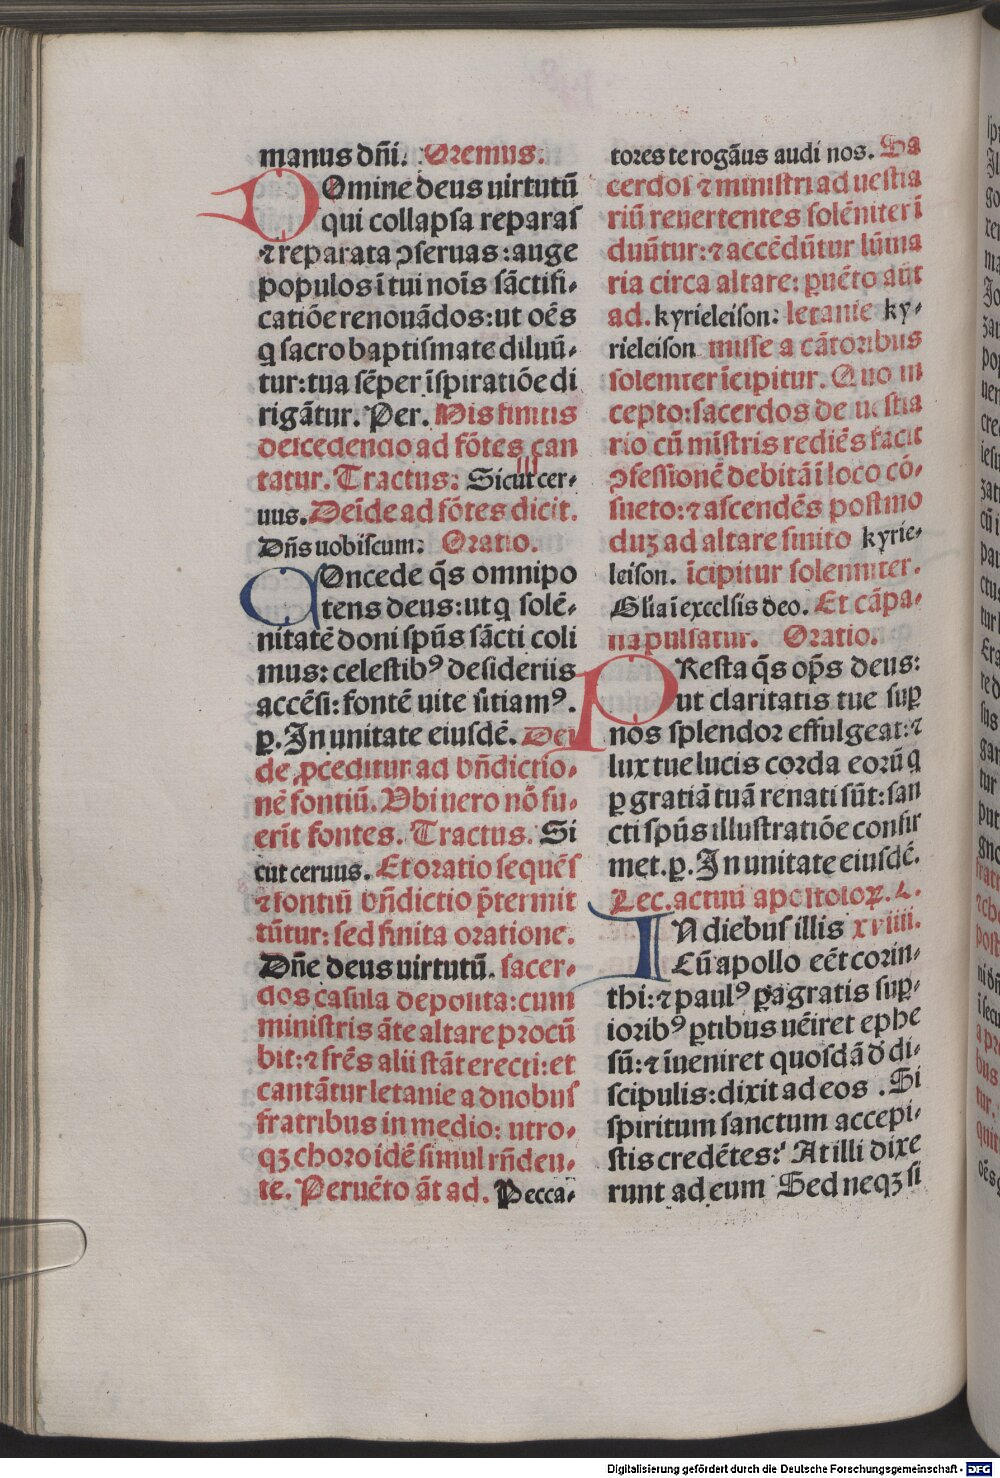 manus dñi. Oremus.
DOmine deus uirtutũ
qui collapsa reparas
⁊ reparata ↄseruas: auge
populos ĩ tui noĩs sãctifi-
catiõe renouãdos: ut oẽs
q̃ sacro baptismate diluũ-
tur: tua sẽper ĩspiratiõe di
rigãtur. Per. His finitis
descẽdendo ad fõtes can
tatur. Tractus: Sicut cer-
uus. Deĩde ad fõtes dicit.
Dñs uobiscum: Oratio.
COncede q̃s omnipo
tens deus: ut q̃ solẽ-
nitatẽ doni spũs sãcti coli
mus: celestibꝰ desideriis
accẽsi: fontẽ uite sitiamꝰ.
ꝑ. In unitate eiusdẽ. Dei
de ꝓceditur ad bñdictio-
nẽ fontiũ. Vbi uero nõ fu-
erĩt fontes. Tractus. Si
cut ceruus. Et oratio sequẽs
⁊ fontiũ bñdictio p̃termit
tũtur: sed finita oratione.
Dñe deus uirtutũ. sacer-
dos casula deposita: cum
ministris ãte altare procũ
bit: ⁊ frẽs alii stãt erecti: et
cantãtur letanie a duobus
fratribus in medio: utro-
qꝫ choro idẽ simul rñden-
te. Peruẽto ãt ad. Pecca-
tores te rogãus audi nos. Sa
cerdos ⁊ ministri ad uestia
riũ reuertentes solẽniter ĩ
duũtur: ⁊ accẽdũtur lũina
ria circa altare: ꝑuẽto aũt
ad. kyrieleison: letanie ky-
rieleison misse a cãtoribus
solemter ĩcipitur. Quo in
cepto: sacerdos de uestia
rio cũ mĩstris rediẽs facit
ↄfessionẽ debitã ĩ loco cõ-
sueto: ⁊ ascendẽs postmo
duꝫ ad altare finito kyrie-
leison. ĩcipitur solenniter.
Glia ĩ excelsis deo. Et cãpa-
na pulsatur. Oratio.
PResta q̃s op̃s deus:
ut claritatis tue suꝑ
nos splendor effulgeat: ⁊
lux tue lucis corda eorũ q̃
ꝑ gratiã tuã renati sũt: san
cti spũs illustratiõe confir
met. ꝑ. In unitate eiusdẽ.
Lec. actuũ apostoloꝝ. c.
IN diebus illis xviiii.
Cũ apollo eẽt corin-
thi: ⁊ paulꝰ ꝑagratis suꝑ-
ioribꝰ ꝑtibus uẽiret ephe
sũ: ⁊ ĩueniret quosdã d̃ di-
scipulis: dixit ad eos. Si
spiritum sanctum accepi-
stis credẽtes: At illi dixe
runt ad eum Sed neqꝫ si
Digitalisierung gefördert durch die Deutsche Forschungsgemeinschaft - DFG